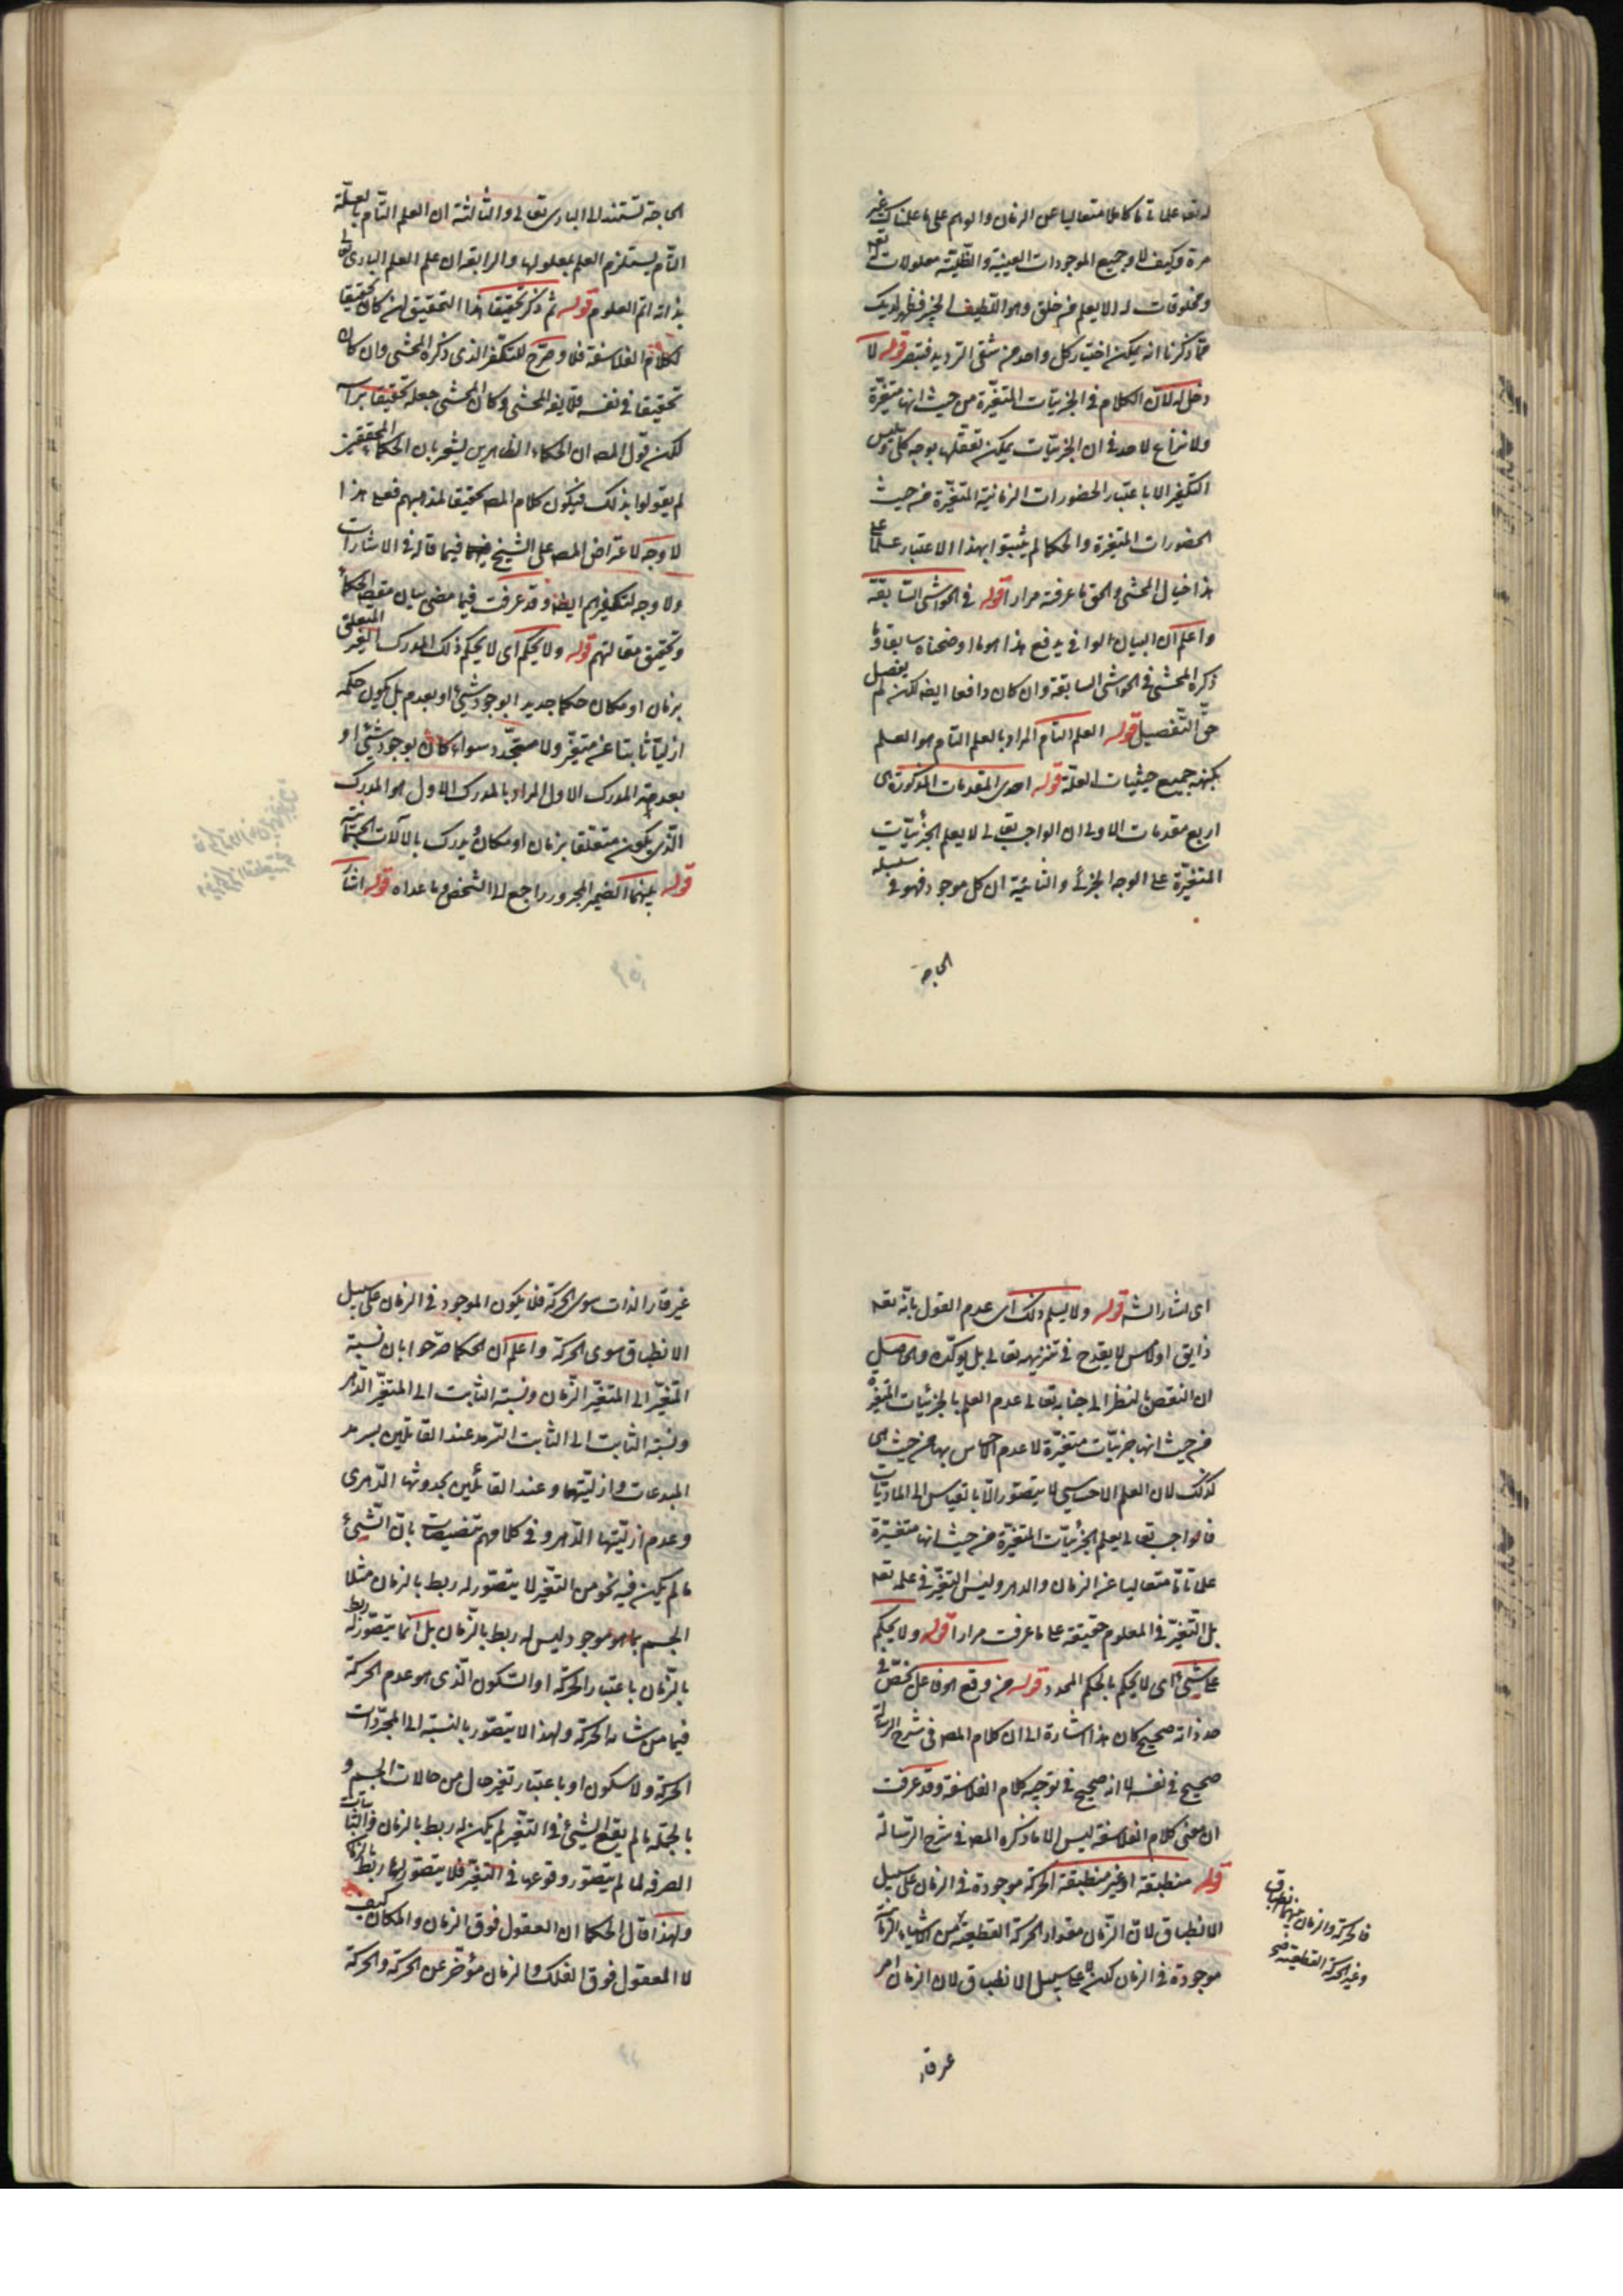 له تعا علما تاما كاملا متعاليا عن الزمان والدهر على ما علمناك غير
مرة وكيف لا وجميع الموجودات العينية والظلية معلولات له تعه
ومخلوقات له الا يعلم من خلق وهو اللطيف الخبير فظهر لديك
مما ذكرنا انه يمكن اختيار كل واحد من شقى الترديد فتبصر قوله لا
دخل له لان الكلام فى الجزئيات المتغيرة من حيث انها متغيرة
ولا نزاع لاحد فى ان الجزئيات يمكن تعقلها بوجه كلى وليس
التكفير الا باعتبار الحضورات الزمانية المتغيرة من حيث
الحضورات المتغيرة والحكما لم يثبتوا بهذا الاعتبار علما
هذا خيال المحشى والحق ما عرفته مرارا قوله فى الحواشى السابقة
واعلم ان البيان الوافى يدفع هذا هو ما اوضحناه سابقا وما
ذكره المحشى فى الحواشى السابقة وان كان دافعا ايضه لكن لم يفصل
حق التفصيل قوله العلم التام المراد بالعلم التام هو العلم
بكنهه بجميع حيثيات العلة قوله احدى المقدمات المذكورة هى
اربع مقدمات الاولى ان الواجب تعالى لا يعلم الجزئيات
المتغيرة على الوجه الجزئى والثانية ان كل موجود فهو فى سلسلة
الحاجة
الحاجة تستند الى البارى تعالى والثالثة ان العلم التام بالعلة
التام يستلزم العلم بمعلولها والرابعة ان علم العلم البارى تعالى
بذاته اتم العلوم قوله ثم ذكر تحقيقا هذا التحقيق لان كان تحقيقا
لكلام الفلاسفة فلا وجه للتكفر الذى ذكره المحشى وان كان
تحقيقا فى نفسه فلا يفه المحشى وكان المحشى جعله تحقيقا براسه
لكن قول المصه ان الحكماء الظاهرين يشعر بان الحكماء المحققين
لم يقولوا بذلك فيكون كلام المصه تحقيقا لمذهبهم فعلى هذا
لا وجه لاعتراض المصه على الشيخ فيما قاله فى الاشارات
ولا وجه لتكفيرهم ايضا وقد عرفت فيما مضى بيان مقصد الحكما
وتحقيق مقالتهم قوله ولا يحكم اى لا يحكم ذلك المدرك الغير المتعلق
بزمان او مكان حكما جديدا بوجود شيئ او بعدم بل يكون حكمه
ازليا ثابتا غير متغير ولا متجدد سواء كان بوجود شيئ او
بعدمه المدرك الاول المراد بالمدرك الاول هو المدرك
الذى يكون متعلقا بزمان او مكان يدرك بالآلات الجسمانية
قوله بينهما الضمير المجرور راجع الى الشخص وما عداه قوله اشار
اى اشار الشه قوله ولا يسلم ذلك اى عدم القول بانه تعه
ذايق او لامس لا يقدح فى تنزيهه تعالى بل يؤكده والحاصل
ان النقص بالنظر الى جنابه تعالى عدم العلم بالجزئيات المتغيرة
من حيث انها جزئيات متغيرة لا عدم احساس بها من حيث هى
كذلك لان العلم الاحساسى لا يتصور الا بالقياس الى الماديات
فالواجب تعالى يعلم الجزئيات المتغيرة من حيث انها متغيرة
علما تاما متعاليا عن الزمان والدهر وليس التغير فى علمه تعه
بل التغير فى المعلوم حقيقة على ما عرفت مرارا قوله ولا يحكم
على شيئ اى لا يحكم بالحكم المجدد قوله من وقع هو فاعل يختص فى
حد ذاته صحيح كان هذا اشارة الى ان كلام المصه فى شرح الرسالة
صحيح فى نفسه لا انه صحيح فى توجيه كلام الفلاسفة وقد عرفت
ان معنى كلام الفلاسفة ليس الا ما ذكره المصه فى شرح الرسالة
قوله منطبقة او غير منطبقة الحركة موجودة فى الزمان على سبيل
الانطباق لان الزمان مقدار الحركة القطعية من الاشياء الزمانية
موجودة فى الزمان لكن لا على سبيل الانطباق لان الزمان امر
فالحركة والزمان بينهما انطباق
وغير الحركة القطعية صح
غير قار
غير قار الذات سوى الحركة فلا يكون الموجود فى الزمان على سبيل
الانطباق سوى الحركة واعلم ان الحكما صرحوا بان نسبة
المتغير الى المتغير الزمان ونسبة الثابت الى المتغير الدهر
ونسبة الثابت الى الثابت السرمد عند القائلين بسرمد
المبدعات وازليتها وعند القائلين بحدوثها الدهرى
وعدم ازليتها الدهر وفى كلامهم تنصيصات بان الشيئ
ما لم يكن فيه نحو من التغير لا يتصور له ربط بالزمان مثلا
الجسم بما هو موجود ليس له ربط بالزمان بل انما يتصور له ربط
بالزمان باعتبار الحركة او السكون الذى هو عدم الحركة
فيما من شانه الحركة ولهذا لا يتصور بالنسبة الى المجردات
الحركة ولا سكون او باعتبار تغير حال من حالات الجسم و
بالجملة ما لم يقع الشيئ فى التغير لم يكن له ربط بالزمان والثابتات
الصرفة لما لم يتصور وقوعها فى التغير فلا يتصور لها ربط بالزمان
ولهذا قال الحكما ان العقول فوق الزمان والمكان كيف
لا المعقول فوق الفلك والزمان مؤخر عن الحركة والحركة